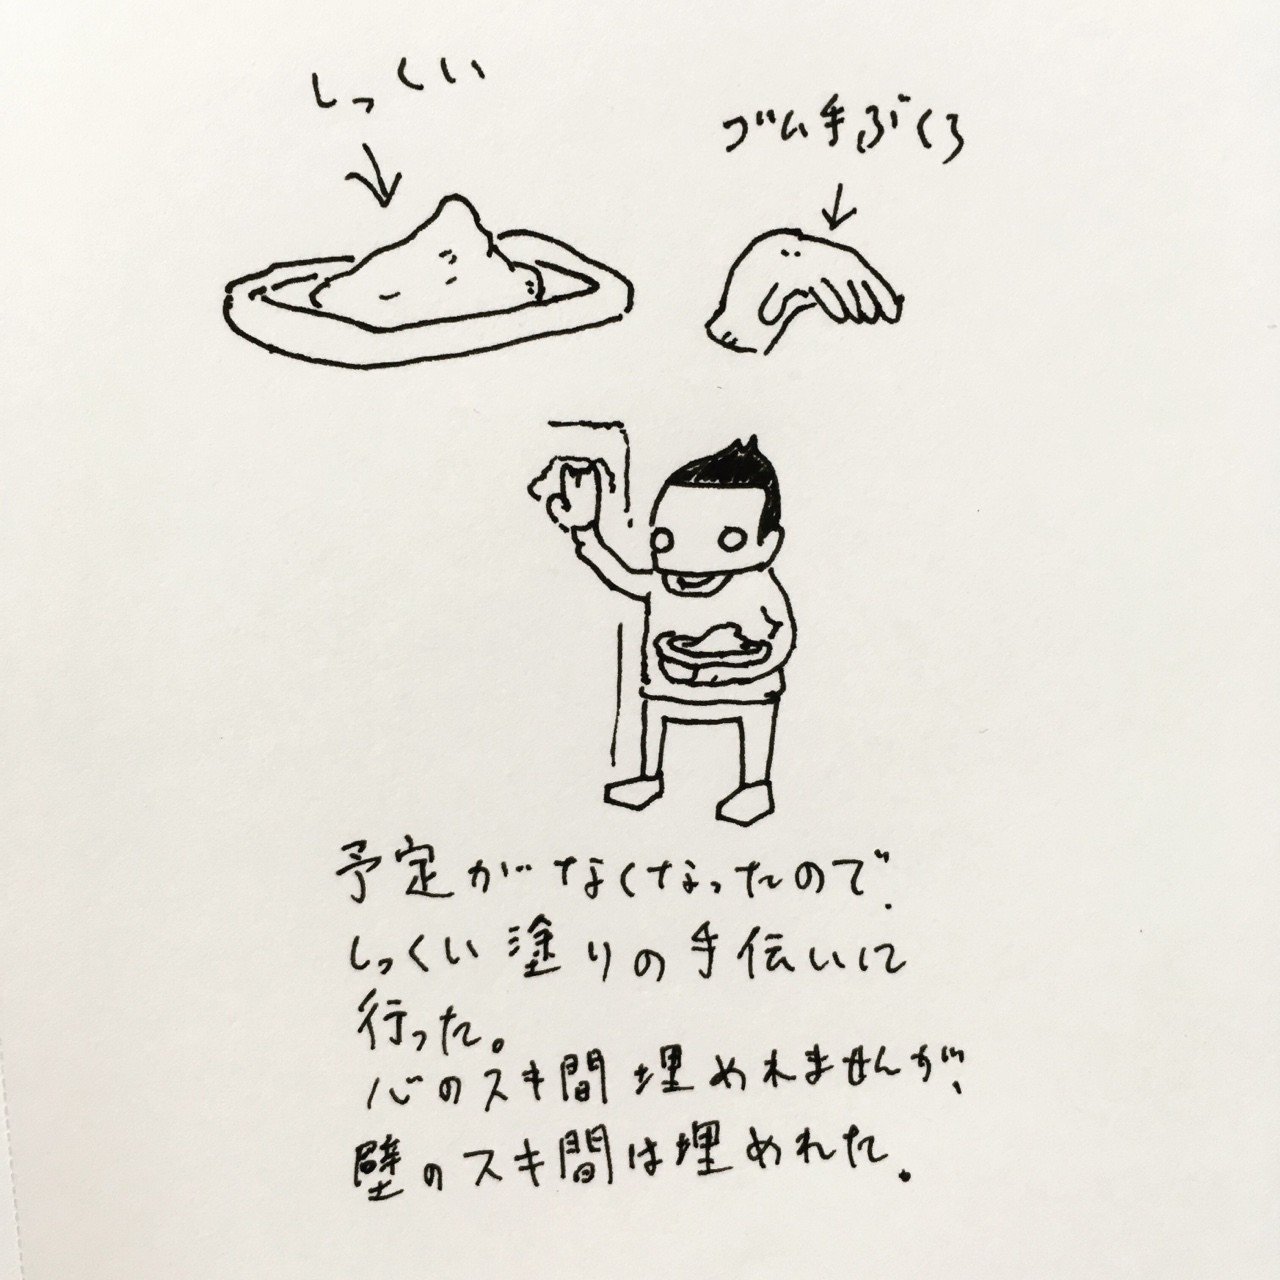 しっくい
ゴム手ぶくろ
予定がなくなったので、
しっくい塗りの手伝いに
行った。
心のスキ間埋めれませんが、
壁のスキ間は埋めれた。